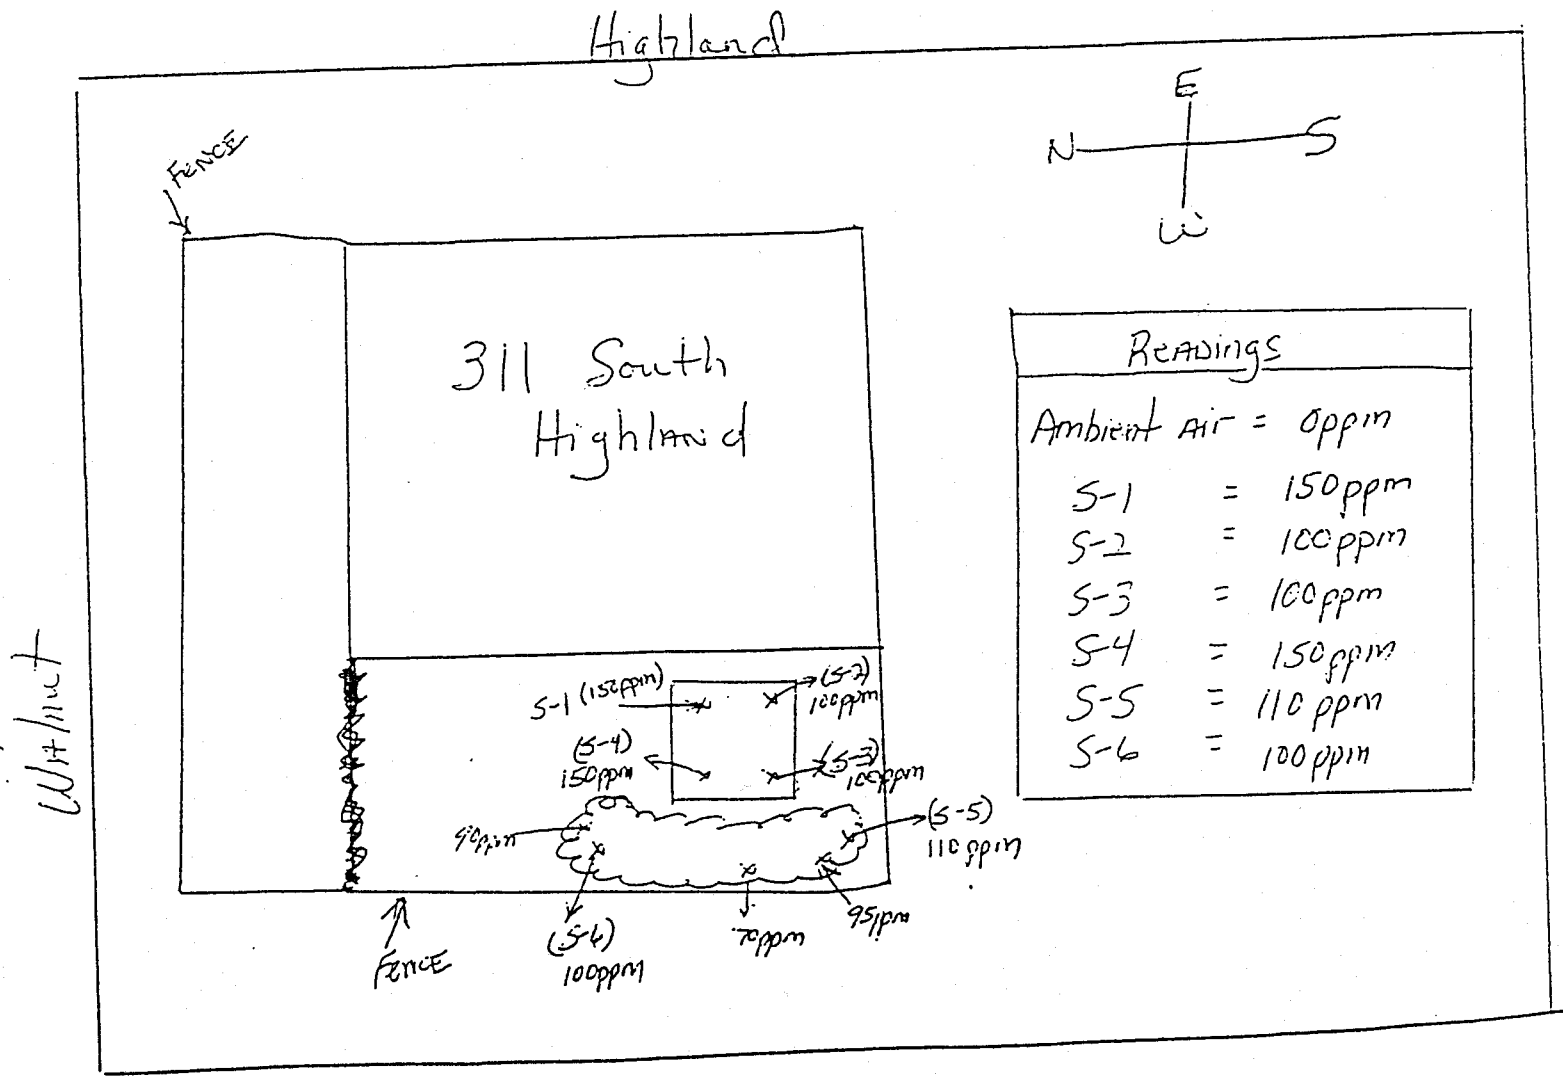 Highland
E
N S
W
FENCE
311 South
Highland
Readings
Ambient Air = 0ppm
S-1 = 150ppm
S-2 = 100ppm
S-3 = 100ppm
S-4 = 150ppm
S-5 = 110ppm
S-6 = 100ppm
Walnut
S-1 (150ppm)
(S-2)
100ppm
(S-4)
150ppm
(S-3)
100ppm
90ppm
(S-5)
110ppm
(S-6)
100ppm
95ppm
FENCE